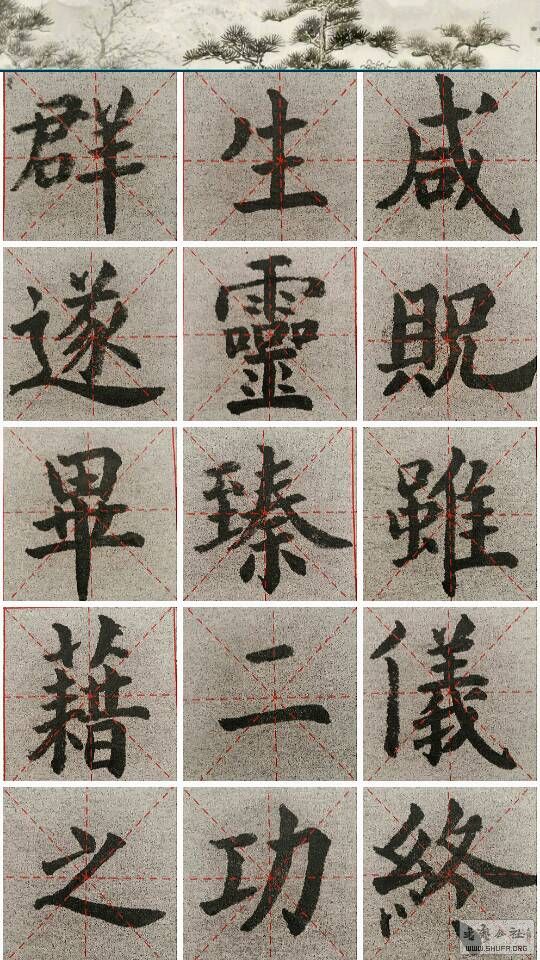 群生咸
遂靈貺
畢臻雖
藉二儀
之功終
WWW.SHUFA.ORG